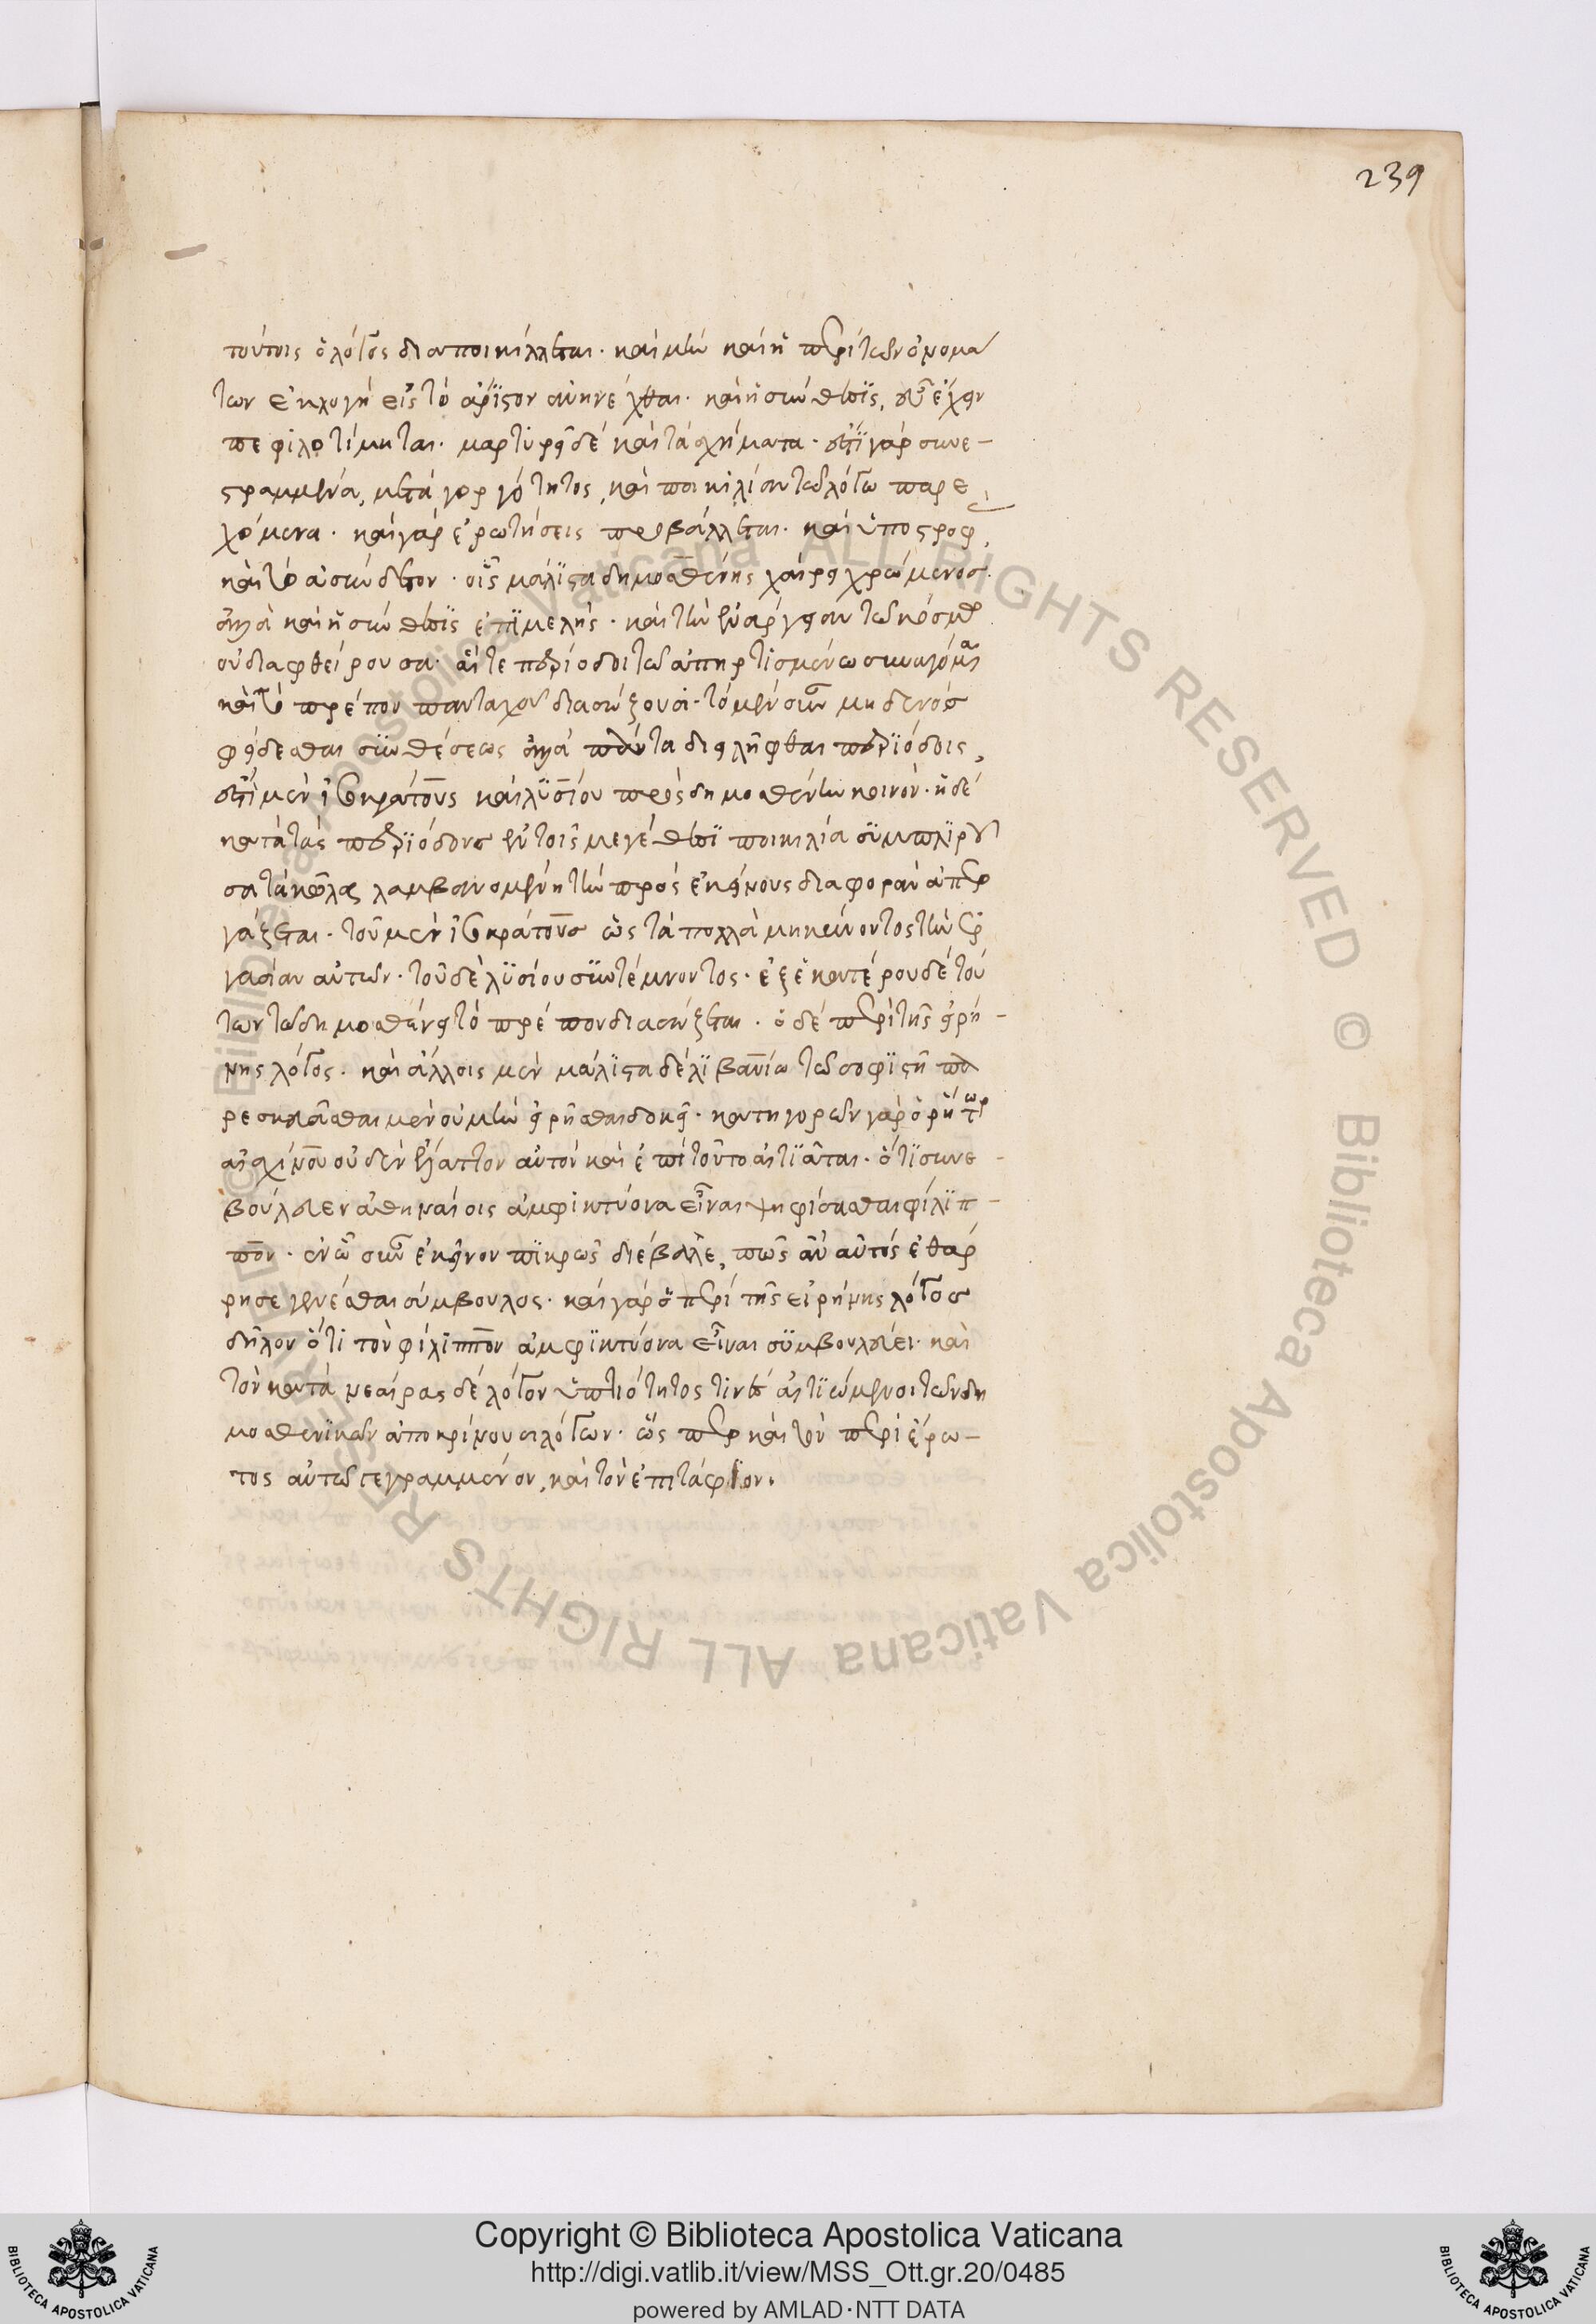 239
τούτοις ὁ λόγος διαποικίλλεται. καὶ μὴν καὶ ἡ περὶ τῶν ὀνομά
των ἐκλογὴ εἰς τὸ ἄριστον ἀνηνέχθαι. καὶ ἡ συνθεσις, εὖ ἔχειν
πεφιλοτίμηται. μαρτυρεῖ δὲ καὶ τὰ σχήματα. ἐστὶ γὰρ συνε-
στραμμένα, μετὰ γοργότητος, καὶ ποικιλίαν τῷ λόγω παρε
χόμενα. καὶ γὰρ ἐρωτήσεις προβάλλεται. καὶ ὑποστροφ,
καὶ τὸ ἀσύνδετον. οἷς μάλιστα δημοσθένης χαίρει χρώμενος.
ἀλλὰ καὶ ἡ σύνθεσις ἐπιμελής. καὶ τὴν ἐνάργειαν τῷ κόσμω
οὐ διαφθείρουσα. αἵ τε περίοδοι τῷ ἀπηρτισμένω συναγόμεναι
καὶ τὸ πρέπον πανταχοῦ διασώζουσι. τὸ μὲν οὖν μηδενὸς
φείδεσθαι συνθέσεως ἀλλὰ πάντα διειλῆφθαι περιόδοις,
ἐστὶ μὲν ἰσοκράτους καὶ λυσίου πρὸς δημοσθένην κοινόν. ἡ δὲ
κατὰ τὰς περιόδους ἐν τοῖς μεγέθεσι ποικιλία συμπληροῦ
σα τὰ κῶλα λαμβανομένη τὴν πρὸς ἐκείνους διαφορὰν ἀπερ
γάζεται. τοῦ μὲν ἰσοκράτους ὡς τὰ πολλὰ μηκύνοντος τὴν ἐρ
γασίαν αὐτῶν. τοῦ δὲ λυσίου συντέμνοντος. ἐξ ἑκατέρου δὲ τού
των τῷ δημοσθένει τὸ πρέπον διασώζεται. ὁ δὲ περὶ τῆς εἰρή-
νης λόγος. καὶ ἄλλοις μὲν μάλιστα δὲ λιβανίω τῷ σοφιστῆ πα
ρεσκευᾶσθαι μὲν οὐ μὴν εἰρῆσθαι δοκεῖ. κατηγορῶν γὰρ ὁ ῥήτωρ
αἰσχίνου οὐδὲν ἔλαττον αὐτὸν καὶ ἐπὶ τοῦτο αἰτιᾶται. ὅτι συνε-
βούλευεν ἀθηναίοις ἀμφικτύονα εἶναι ψηφίσασθαι φίλιπ-
πον. ἐν ὧ οὖν ἐκεῖνον πικρῶς διέβαλλε, πῶς ἂν αὐτὸς ἐθάρ
ρησε γενέσθαι σύμβουλος. καὶ γὰρ ὁ περὶ τῆς εἰρήνης λόγος
δῆλον ὅτι τὸν φίλιππον ἀμφικτύονα εἶναι συμβουλεύει. καὶ
τὸν κατὰ νεαίρας δὲ λόγον ὑπτιότητος τινὲς αἰτιώμενοι τῶν δη
μοσθενικῶν ἀποκρίνουσι λόγων. ὥς περ καὶ τὸν περὶ ἔρω-
τος αὐτῷ γεγραμμένον, καὶ τὸν ἐπιτάφιον.
Copyright © Biblioteca Apostolica Vaticana
http://digi.vatlib.it/view/MSS_Ott.gr.20/0485
powered by AMLAD·NTT DATA
BIBLIOTECA APOSTOLICA VATICANA
BIBLIOTECA APOSTOLICA VATICANA
© Biblioteca Apostolica Vaticana ALL RIGHTS RESERVED
© Biblioteca Apostolica Vaticana ALL RIGHTS RESERVED